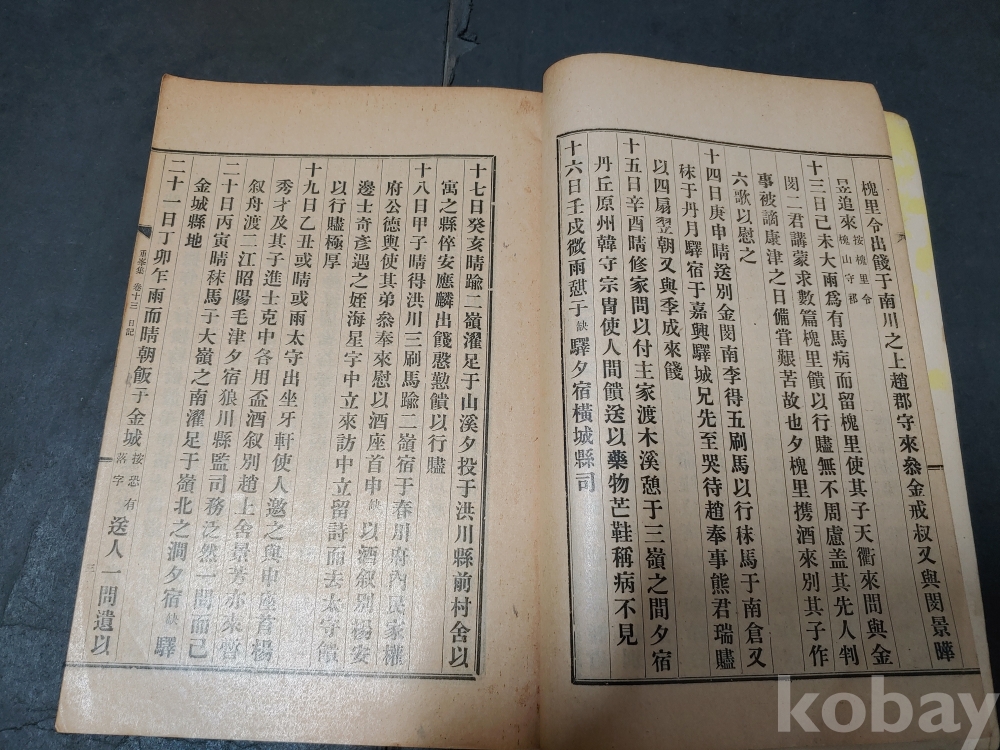 槐里令出餞于南川之上趙郡守來叅金戒叔又與閔景曄
昱追來 按槐里令
槐山守郡
十三日己未大雨爲有馬病而留槐里使其子天衢來問與金
閔二君講蒙求數篇槐里饋以行贐無不周慮盖其先人判
事被謫康津之日備甞艱苦故也夕槐里携酒來別其子作
六歌以慰之
十四日庚申晴送別金閔南李得五刷馬以行秣馬于南倉又
秣于丹月驛宿于嘉興驛城兄先至哭待趙奉事熊君瑞贐
以四扇翌朝又與季成來餞
十五日辛酉晴修家問以付主家渡木溪憩于三嶺之間夕宿
丹丘原州韓守宗胄使人問饋送以藥物芒鞋稱病不見
十六日壬戌微雨憇于缺驛夕宿橫城縣司
十七日癸亥晴踰二嶺濯足于山溪夕投于洪川縣前村舍以
寓之縣倅安應麟出餞慇懃饋以行贐
十八日甲子晴得洪川三刷馬踰二嶺宿于春川府內民家權
府公德輿使其弟叅奉來慰以酒座首申缺以酒叙別楊安
邊士奇彥遇之姪海星字中立來訪中立留詩而去太守饋
以行贐極厚
十九日乙丑或晴或雨太守出坐牙軒使人邀之與申座首楊
秀才及其子進士克中各用盃酒叙別趙上舍景 亦來
叙舟渡二江昭陽毛津夕宿狼川縣監司務泛然一問而已
二十日丙寅晴秣馬于大嶺之南濯足于嶺北之澗夕宿缺驛
金城縣地
二十一日丁卯乍雨而晴朝飯于金城 按恐有
落字 送人一問遺以
重峯集 卷十三 日記
三
kobay